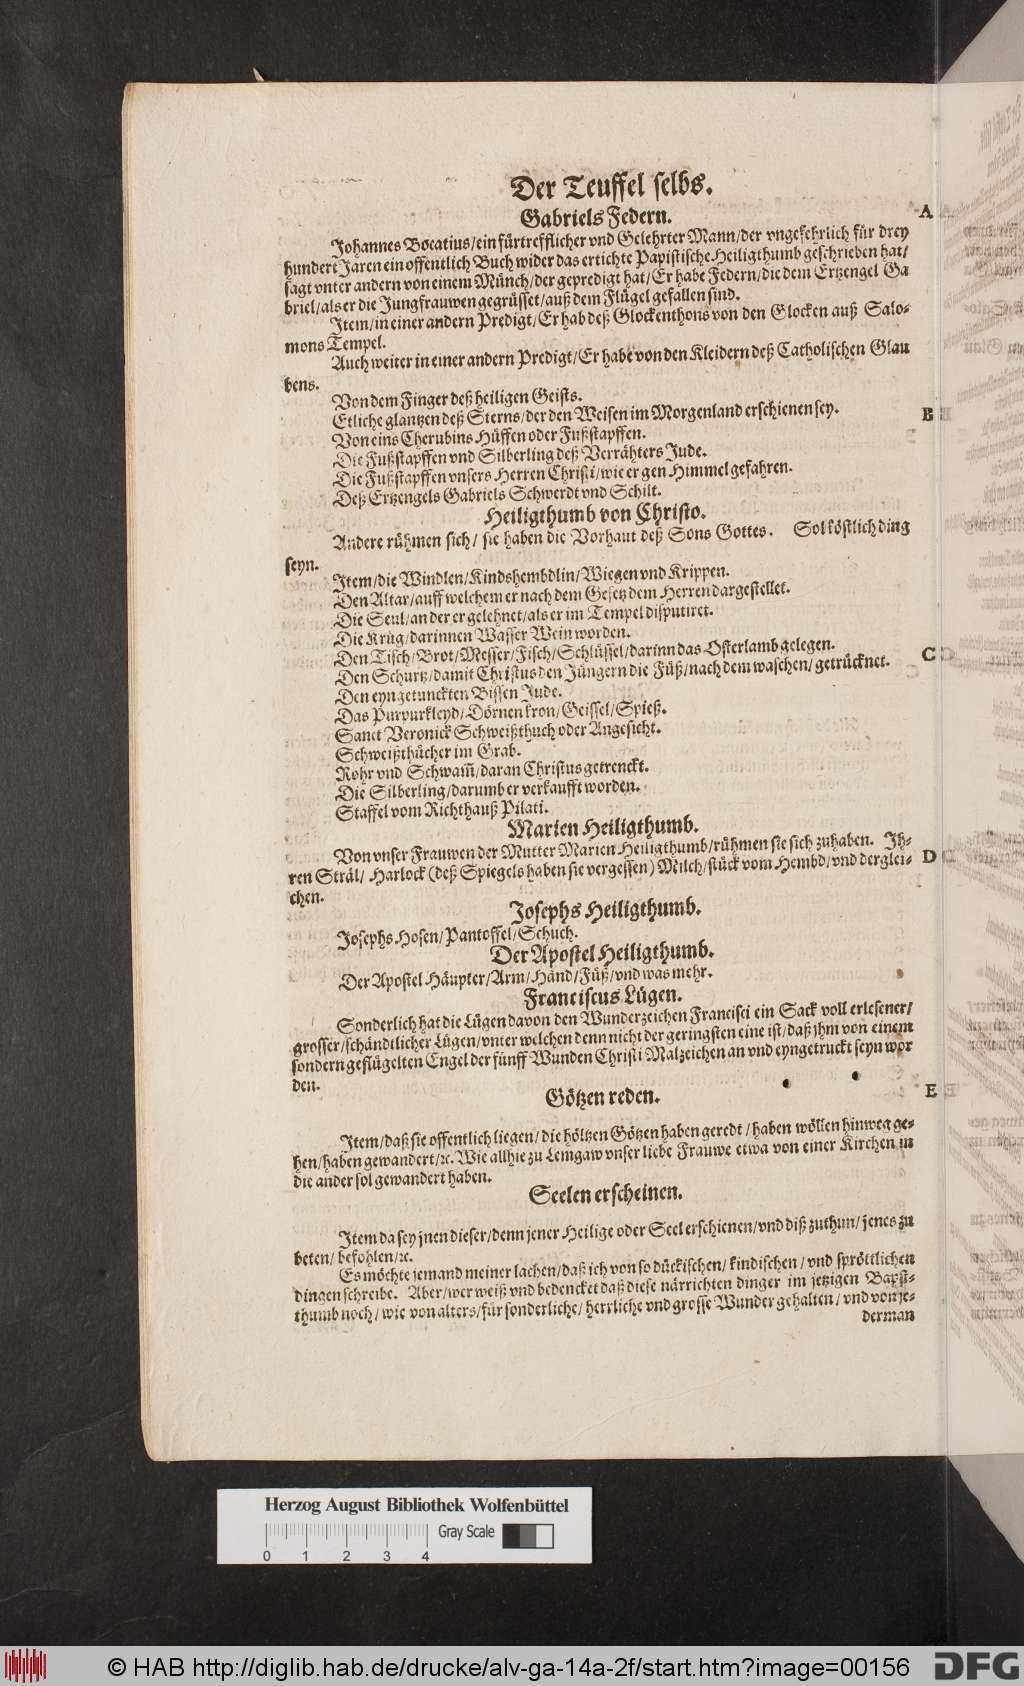 Der Teuffel selbs.
Gabriels Federn.
A
Johannes Bocatius/ein fürtrefflicher vnd Gelehrter Mann/der vngefehrlich für drey
hundert Jaren ein offentlich Buch wider das ertichte Papistische Heiligthumb geschrieben hat/
sagt vnter andern von einem Münch/der gepredigt hat/Er habe Federn/die dem Ertzengel Ga
briel/als er die Jungfrauwen gegrüsset/auß dem Flügel gefallen sind.
Item/in einer andern Predigt/Er hab deß Glockenthons von den Glocken auß Salo-
mons Tempel.
Auch weiter in einer andern Predigt/Er habe von den Kleidern deß Catholischen Glau
bens.
Von dem Finger deß heiligen Geists.
Etliche glantzen deß Sterns/der den Weisen im Morgenland erschienen sey.
B
Von eins Cherubins Hüffen oder Fußstapffen.
Die Fußstapffen vnd Silberling deß Verrähters Jude.
Die Fußstapffen vnsers Herren Christi/wie er gen Himmel gefahren.
Deß Ertzengels Gabriels Schwerdt vnd Schilt.
Heiligthumb von Christo.
Andere rühmen sich/ sie haben die Vorhaut deß Sons Gottes. Sol köstlich ding
seyn.
Item/die Windlen/Kindshembdlin/Wiegen vnd Krippen.
Den Altar/auff welchem er nach dem Gesetz dem Herren dargestellet.
Die Seul/an der er gelehnet/als er im Tempel disputiret.
Die Krüg/darinnen Wasser Wein worden.
Den Tisch/Brot/Messer/Fisch/Schlüssel/darinn das Osterlamb gelegen.
C
Den Schurtz/damit Christus den Jüngern die Füß/nach dem waschen/getrücknet.
Den eyngetunckten Bissen Jude.
Das Purpurkleyd/Dörnen kron/Geissel/Spieß.
Sanct Veronick Schweißthuch oder Angesicht.
Schweißthücher im Grab.
Rohr vnd Schwam̃/daran Christus getrenckt.
Die Silberling/darumb er verkaufft worden.
Staffel vom Richthauß Pilati.
Marien Heiligthumb.
Von vnser Frauwen der Mutter Marien Heiligthumb/rühmen sie sich zuhaben. Ih-
D
ren Sträl/ Harlock (deß Spiegels haben sie vergessen) Milch/stück vom Hembd/vnd derglei-
chen.
Josephs Heiligthumb.
Josephs Hosen/Pantoffel/Schuch.
Der Apostel Heiligthumb.
Der Apostel Häupter/Arm/Händ/Füß/vnd was mehr.
Franciscus Lügen.
Sonderlich hat die Lügen davon den Wunderzeichen Francisci ein Sack voll erlesener/
grosser/schändtlicher Lügen/vnter welchen denn nicht der geringsten eine ist/daß jhm von einem
sondern geflügelten Engel der fünff Wunden Christi Malzeichen an vnd eyngetruckt seyn wor
den.
Götzen reden.
E
Item/daß sie offentlich liegen/die höltzen Götzen haben geredt/haben wöllen hinweg ge-
hen/haben gewandert/ꝛc. Wie allhie zu Lemgaw vnser liebe Frauwe etwa von einer Kirchen in
die ander sol gewandert haben.
Seelen erscheinen.
Item da sey jnen dieser/denn jener Heilige oder Seel erschienen/vnd diß zuthun/jenes zu
beten/ befohlen/ꝛc.
Es möchte jemand meiner lachen/daß ich von so dückischen/kindischen/vnd spröttlichen
dingen schreibe. Aber/wer weiß vnd bedencket daß diese närrichten dinger im jetzigen Bapst-
thumb noch/wie von alters/für sonderliche/herrliche vnd grosse Wunder gehalten/vnd von je-
derman
Herzog August Bibliothek Wolfenbüttel
Gray Scale
0 1 2 3 4
© HAB http://diglib.hab.de/drucke/alv-ga-14a-2f/start.htm?image=00156
DFG